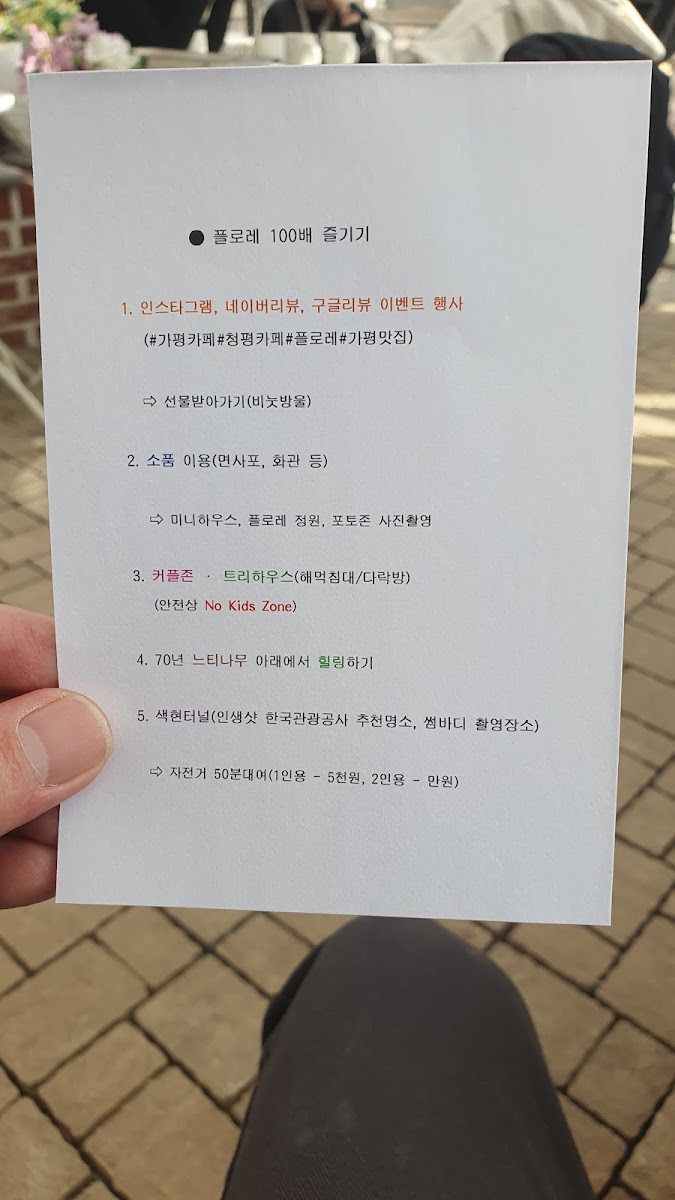 ● 플로레 100배 즐기기
1. 인스타그램, 네이버리뷰, 구글리뷰 이벤트 행사
(#가평카페#청평카페#플로레#가평맛집)
⇨ 선물받아가기(비눗방울)
2. 소품 이용(면사포, 화관 등)
⇨ 미니하우스, 플로레 정원, 포토존 사진촬영
3. 커플존 · 트리하우스(해먹침대/다락방)
(안전상 No Kids Zone)
4. 70년 느티나무 아래에서 힐링하기
5. 색현터널(인생샷 한국관광공사 추천명소, 썸바디 촬영장소)
⇨ 자전거 50분대여(1인용 - 5천원, 2인용 - 만원)